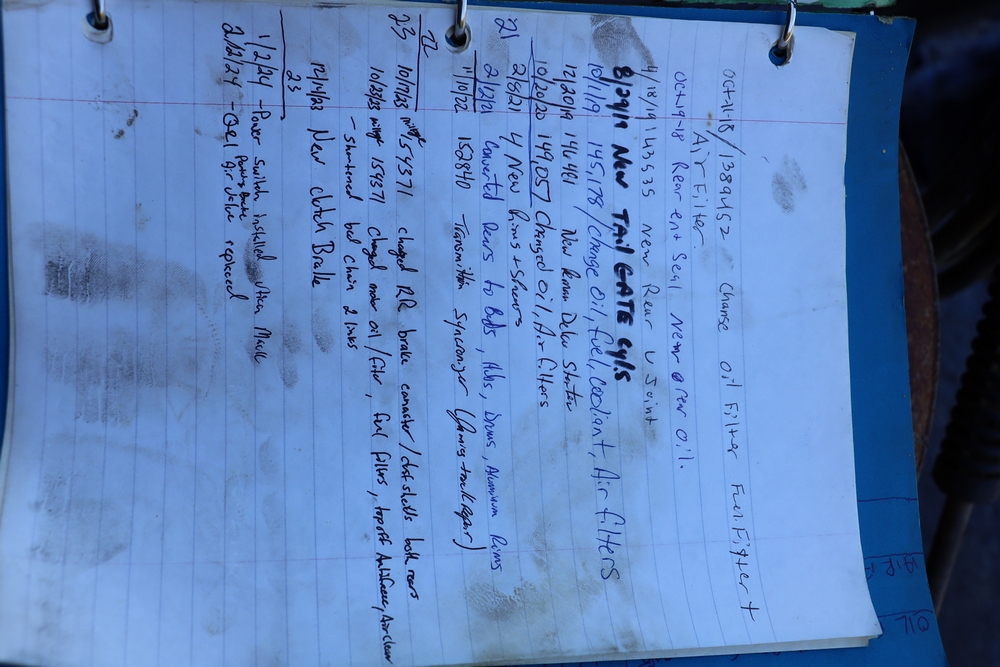 Oct-11-18/1389452 Change oil Filter Fuel Filter +
Air Filter.
Oct-19-18 Rear end Seal New Gear oil.
4/18/19 143535 New Rear U Joint
8/29/19 New TAIL GATE Cyls
10/1/19 145,178/change oil, fuel, coolant, Air filters
12/20/19 146481 New Remn Delco Starter
10/20/20 149,057 changed oil, Air filters
21 2/8/21 4 New Rims + Shoes
2/12/21 Converted Rears to Buds, Hubs, Drums, Aluminum Rims
11/10/22 152840 Transmition Syncronizer (James-truck repair)
22
23 10/17/23 mileage 154371 changed RR brake canister/dust shields both rears
10/23/23 mileage 154371 changed motor oil/filter, fuel filters, top off Antifreeze, Air clean
- shortened bed chain 2 links
12/14/23 New clutch Brake
23
1/2/24 - Power Switch installed
Parking Brake
2/12/24 - Air Valve replaced